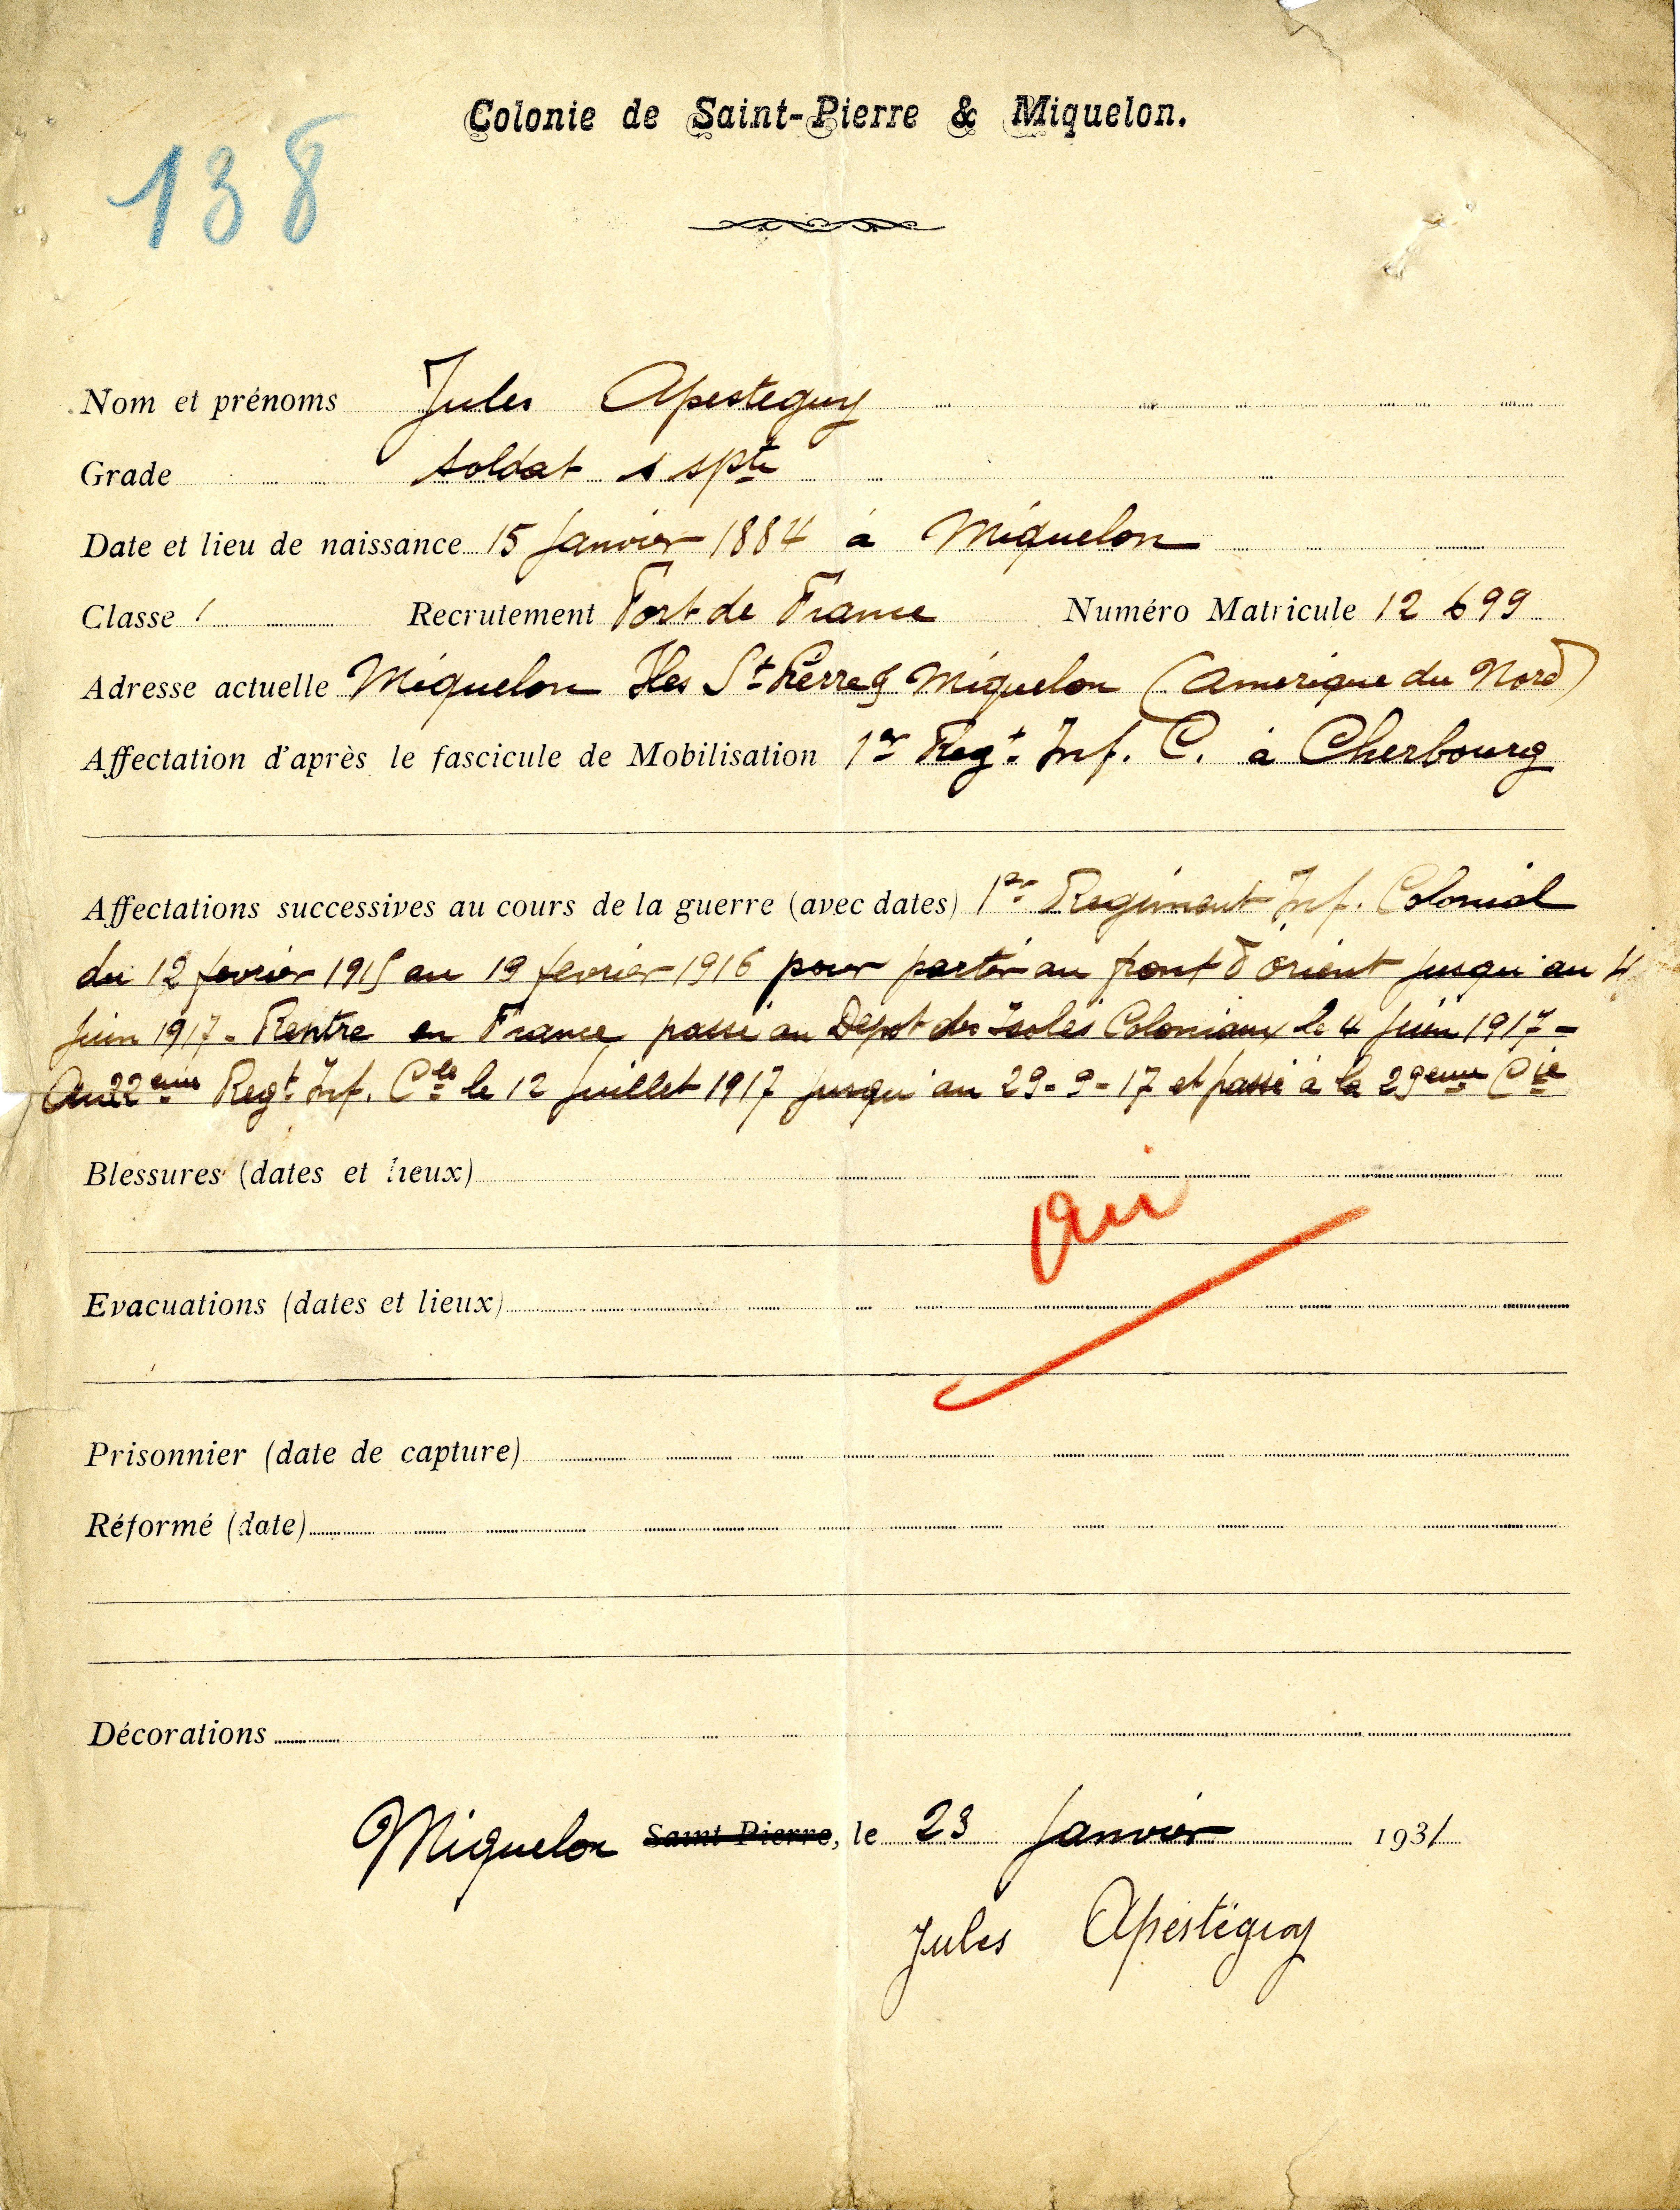 Colonie de Saint-Pierre & Miquelon.
138
Nom et prénoms Jules Apesteguy
Grade soldat s spte
Date et lieu de naissance 15 Janvier 1884 à Miquelon
Classe Recrutement Fort de France Numéro Matricule 12 699
Adresse actuelle Miquelon Iles St Pierre & Miquelon (Amerique du Nord)
Affectation d'après le fascicule de Mobilisation 1er Regt. Inf. C. à Cherbourg
Affectations successives au cours de la guerre (avec dates) 1er Regiment Inf. Colonial
du 12 fevrier 1915 au 19 fevrier 1916 pour partir au front d'orient jusqu'au 4
Juin 1917 - Rentre en France passé au Depot des Isolés Coloniaux le 4 Juin 1917 -
Au 22eme Regt Inf. Cle le 12 Juillet 1917 jusqu'au 29-9-17 et passé à la 29eme Cie
Blessures (dates et lieux)
oui
Evacuations (dates et lieux)
Prisonnier (date de capture)
Réformé (date)
Décorations
Miquelon Saint-Pierre, le 23 Janvier 1931
Jules Apestéguy